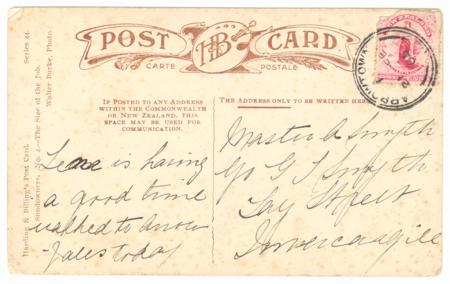 POST HB CARD.
CARTE POSTALE
IF POSTED TO ANY ADDRESS
WITHIN THE COMMONWEALTH
OR NEW ZEALAND, THIS
SPACE MAY BE USED FOR
COMMUNICATION.
THE ADDRESS ONLY TO BE WRITTEN HERE
Harding & Billing's Post Card. Series 44.
Sundowners. No. 4.—The Size of the Job.
Walter Burke, Photo.
is having
a good time
walked to
today
Master A Smyth
C/o G Smyth
Tay Street
Invercargill